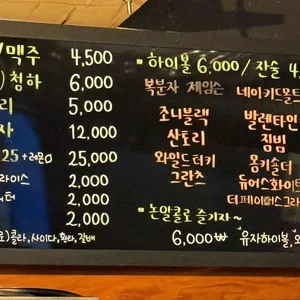 맥주 4,500
청하 6,000
리 5,000
자 12,000
25+레몬 25,000
라이스 2,000
워터 2,000
2,000
콜라, 사이다, 환타, 갈배
= 하이볼 6,000 / 잔술 4
복분자 제임슨 네이키드몰트
조니블랙 발렌타인
산토리 짐빔
와일드터키 몽키숄더
그란츠 듀어스화이트
더페이머스그라
= 논알콜로 즐기자~
6,000₩ 유자하이볼,